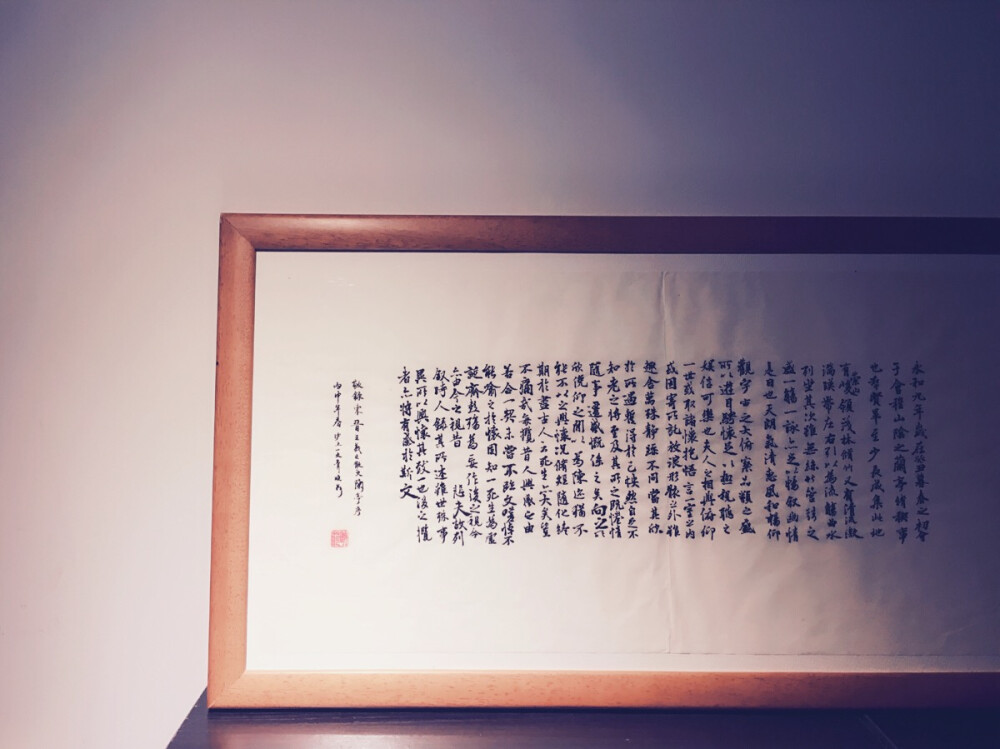 永和九年歲在癸丑暮春之初會
于會稽山陰之蘭亭脩稧事
也群賢畢至少長咸集此地
有崇山峻領茂林脩竹又有清流激
湍暎帶左右引以為流觴曲水
列坐其次雖無絲竹管弦之
盛一觴一詠亦足以暢敘幽情
是日也天朗氣清惠風和暢仰
觀宇宙之大俯察品類之盛
所以遊目騁懷足以極視聽之
娛信可樂也夫人之相與俯仰
一世或取諸懷抱悟言一室之內
或因寄所託放浪形骸之外雖
趣舍萬殊靜躁不同當其欣
於所遇蹔得於己怏然自足不
知老之將至及其所之既惓情
隨事遷感慨係之矣向之所
欣俛仰之閒以為陳迹猶不
能不以之興懷況脩短隨化終
期於盡古人云死生亦大矣豈
不痛哉每攬昔人興感之由
若合一契未嘗不臨文嗟悼不
能喻之於懷固知一死生為虛
誕齊彭殤為妄作後之視今
亦由今之視昔 悲夫故列
敘時人錄其所述雖世殊事
異所以興懷其致一也後之攬
者亦將有感於斯文
敬錄東晉王羲之散文蘭亭序
丙申年春